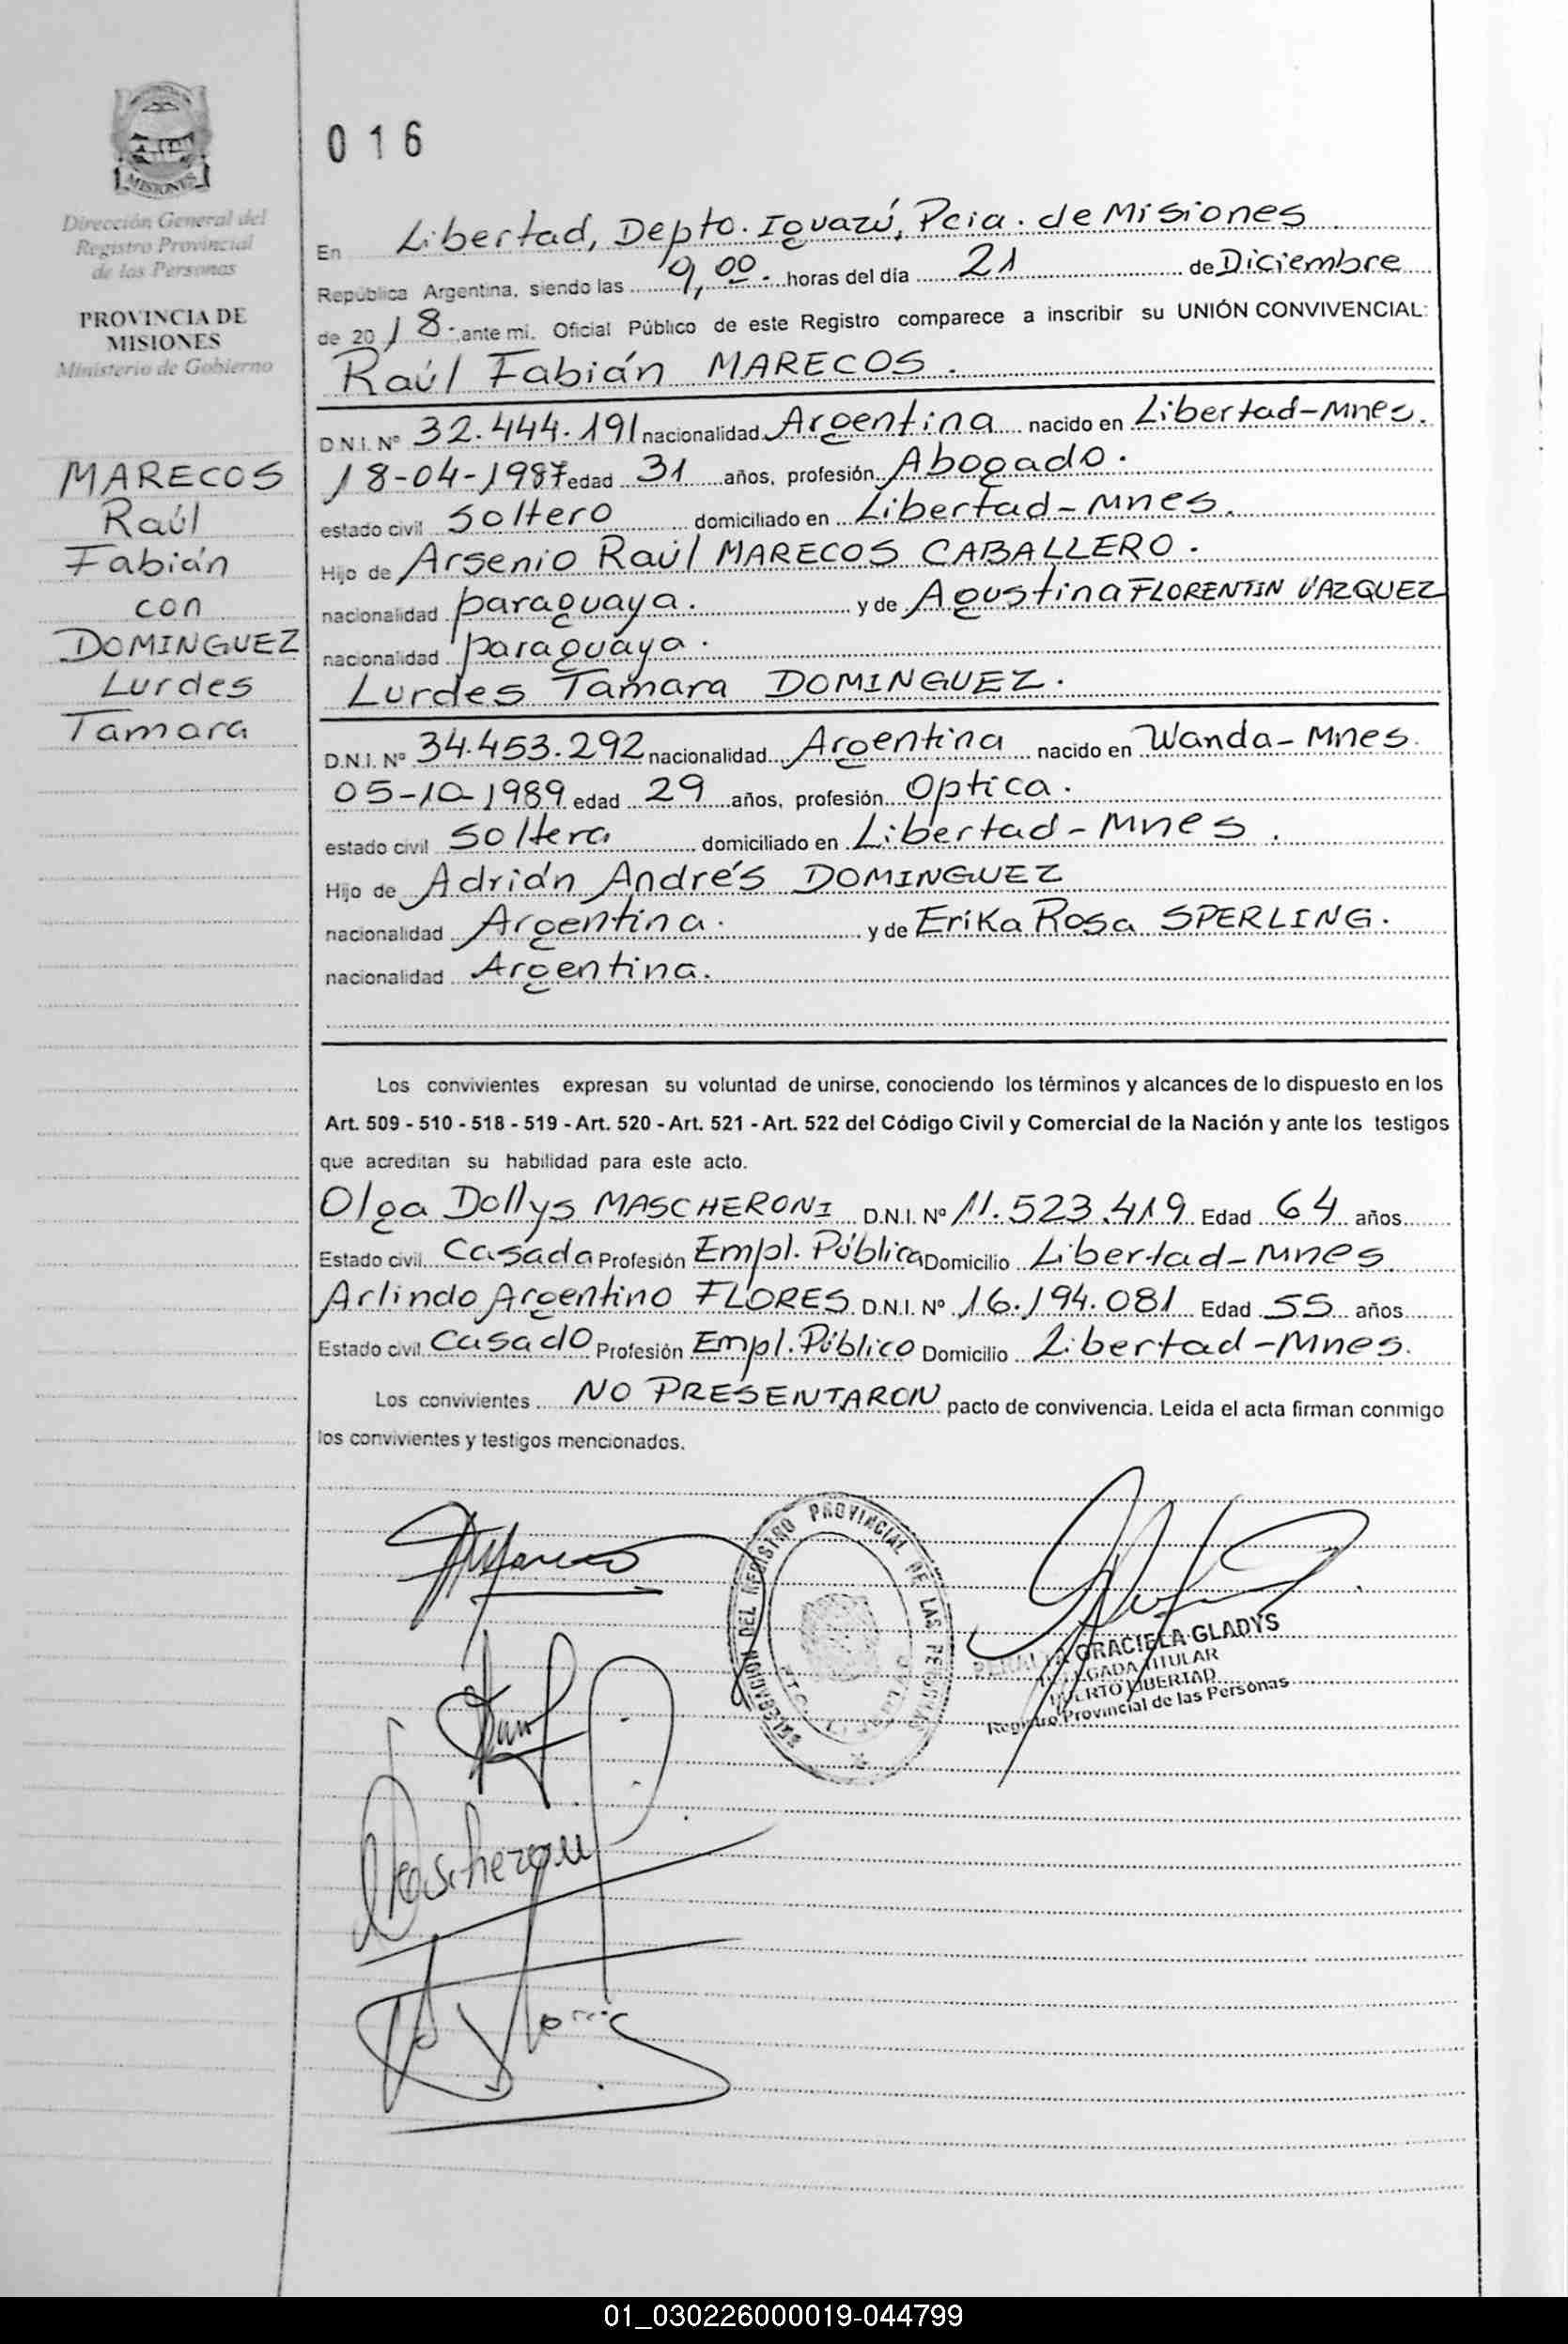 MISIONES
Dirección General del
Registro Provincial
de las Personas
PROVINCIA DE
MISIONES
Ministerio de Gobierno
MARECOS
Raúl
Fabián
con
DOMINGUEZ
Lurdes
Tamara
016
En Libertad, Depto. Iguazú, Pcia. de Misiones
República Argentina, siendo las 9,00.- horas del día 21 de Diciembre
de 2018.- ante mi. Oficial Público de este Registro comparece a inscribir su UNIÓN CONVIVENCIAL:
Raúl Fabián MARECOS.
D.N.I. Nº 32.444.191 nacionalidad Argentina nacido en Libertad-Mnes.
18-04-1987 edad 31 años, profesión Abogado.
estado civil Soltero domiciliado en Libertad-Mnes.
Hijo de Arsenio Raúl MARECOS CABALLERO.
nacionalidad paraguaya. y de Agustina FLORENTIN VAZQUEZ
nacionalidad paraguaya.
Lurdes Tamara DOMINGUEZ.
D.N.I. Nº 34.453.292 nacionalidad Argentina nacido en Wanda-Mnes.
05-10-1989 edad 29 años, profesión Optica.
estado civil Soltera domiciliado en Libertad-Mnes.
Hijo de Adrián Andrés DOMINGUEZ
nacionalidad Argentina. y de Erika Rosa SPERLING.
nacionalidad Argentina.
Los convivientes expresan su voluntad de unirse, conociendo los términos y alcances de lo dispuesto en los
Art. 509 - 510 - 518 - 519 - Art. 520 - Art. 521 - Art. 522 del Código Civil y Comercial de la Nación y ante los testigos
que acreditan su habilidad para este acto.
Olga Dollys MASCHERONI D.N.I. Nº 11.523.419 Edad 64 años
Estado civil Casada Profesión Empl. Pública Domicilio Libertad-Mnes
Arlindo Argentino FLORES D.N.I. Nº 16.194.081 Edad 55 años
Estado civil Casado Profesión Empl. Público Domicilio Libertad-Mnes.
Los convivientes NO PRESENTARON pacto de convivencia. Leída el acta firman conmigo
los convivientes y testigos mencionados.
DELEGACION DEL REGISTRO PROVINCIAL DE LAS PERSONAS
PERALTA GRACIELA GLADYS
DELEGADA TITULAR
PUERTO LIBERTAD
Registro Provincial de las Personas
01_030226000019-044799